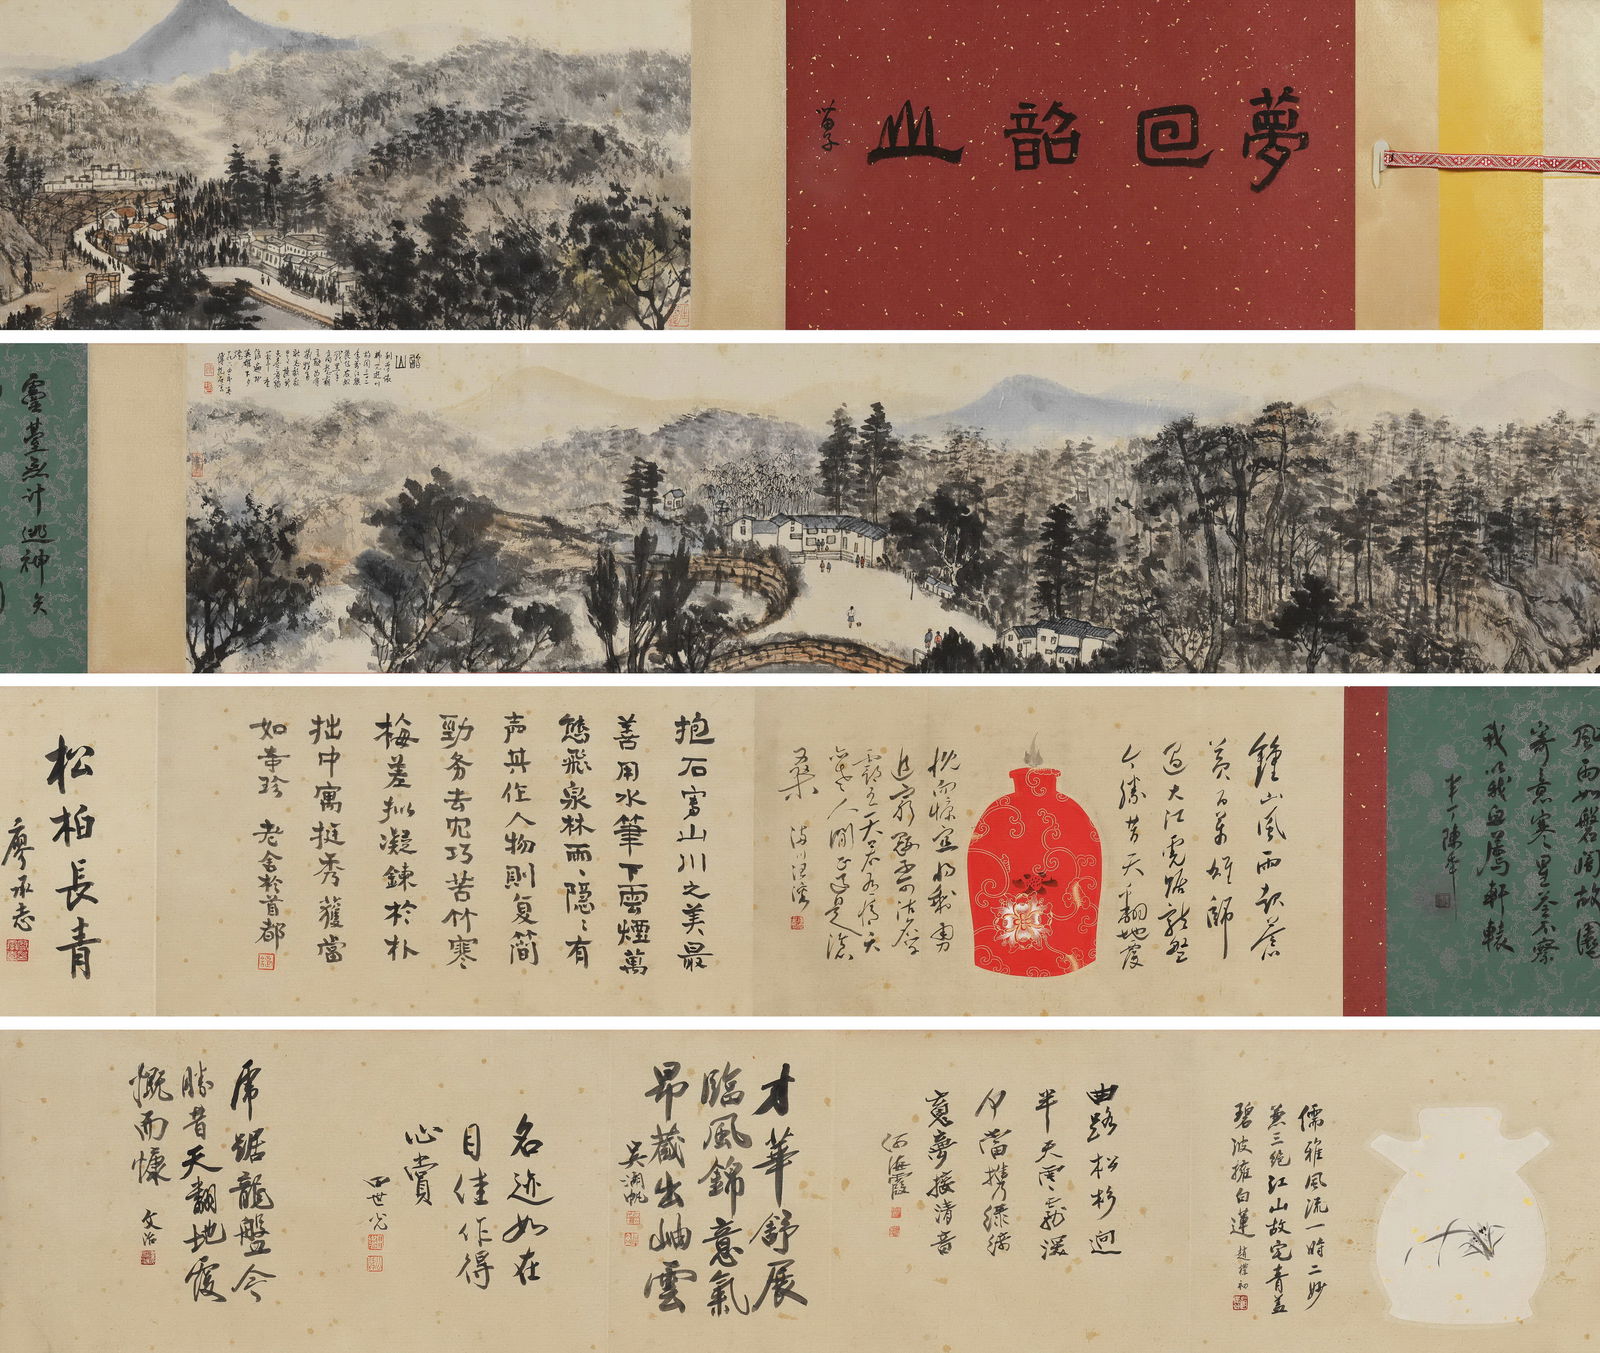 夢回韶山
韶山
靈臺無計逃神矢
風雨如磐闇故園
寄意寒星荃不察
我以我血薦軒轅
半丁陳年
鍾山風雨起蒼
黃百萬雄師
過大江虎踞龍盤
今勝昔天翻地覆
慨而慷宜將剩勇
追窮寇不可沽名學
霸王天若有情天
亦老人間正道是滄
桑
抱石寫山川之美最
善用水筆下雲煙萬
態飛泉林雨隱隱有
声其作人物則复簡
勁务去允巧苦竹寒
梅差拟凝鍊於朴
拙中寓挺秀獲當
如奉珍 老舍於首都
松柏長青
廖承志
儒雅風流一時二妙
蕉三絕江山故宅青蓋
碧波擁白蓮 趙樸初
曲路松杉迥
半天雲霧深
何當携綠綺
意夢接清音
何海霞
才華舒展
臨風錦意氣
昂藏出岫雲
吳湖帆
名迹如在
目佳作得
心賞
四世光
虎踞龍盤今
勝昔天翻地覆
慨而慷 文治